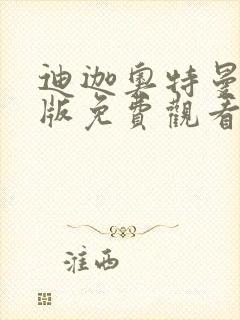 迪迦奥特曼
版免費觀看
淮西